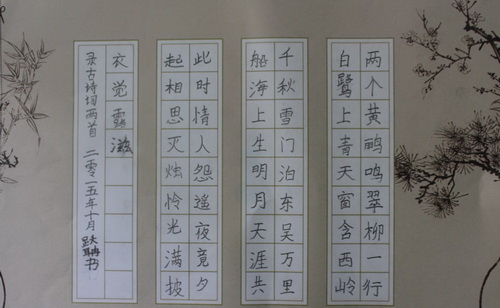 两个黄鹂鸣翠柳一行
白鹭上青天窗含西岭
千秋雪门泊东吴万里
船海上生明月天涯共
此时情人怨遥夜竟夕
起相思灭烛怜光满披
衣觉露滋
录古诗词两首 二零一五年十月 书